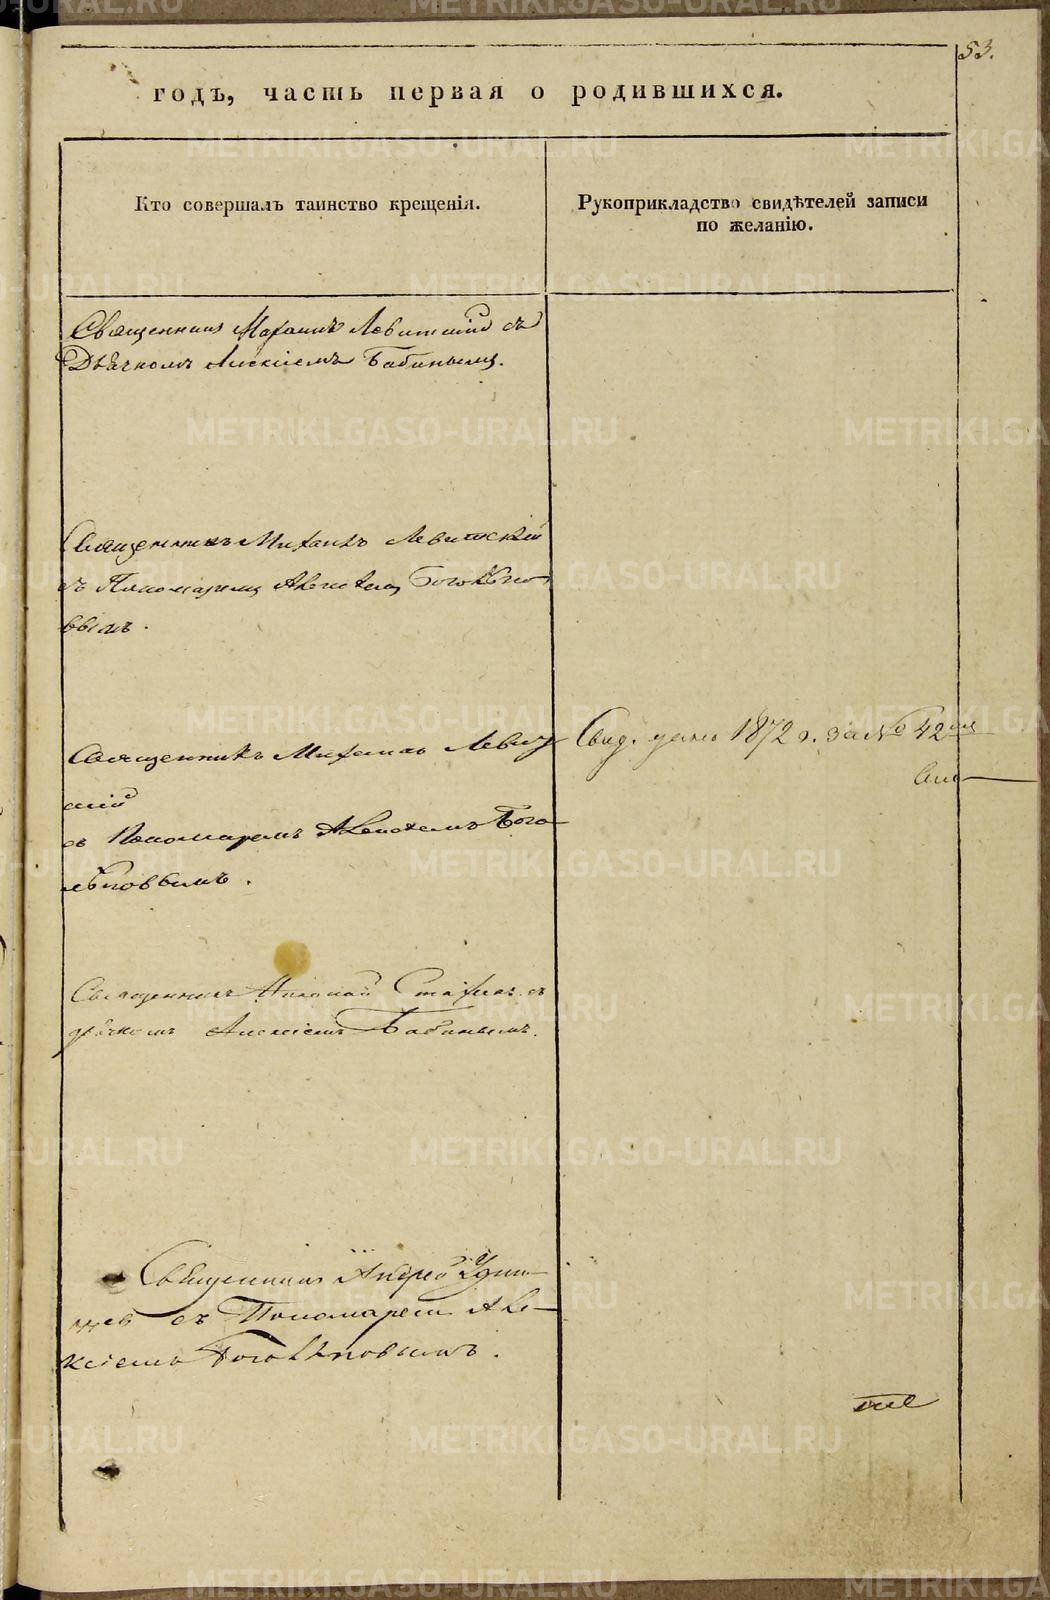 53.
годъ, часть первая о родившихся.
Кто совершалъ таинство крещенія.
Рукоприкладство свидѣтелей записи
по желанію.
Священникъ Михаилъ Левитскій съ
Дьячкомъ Алексіемъ Бабинымъ.
Священникъ Михаилъ Левитскій
съ Пономаремъ Алексѣемъ Боголѣпо
вымъ.
Священникъ Михаилъ Левит
скій
съ Пономаремъ Алексѣемъ Бого
лѣповымъ.
Свид. дано 1872 г. за № 42
Священникъ Николай съ
дьячкомъ Алексіемъ Бабинымъ.
Священникъ Андрей Удин
цев съ Пономаремъ Але-
ксіемъ Боголѣповымъ.
METRIKI.GASO-URAL.RU